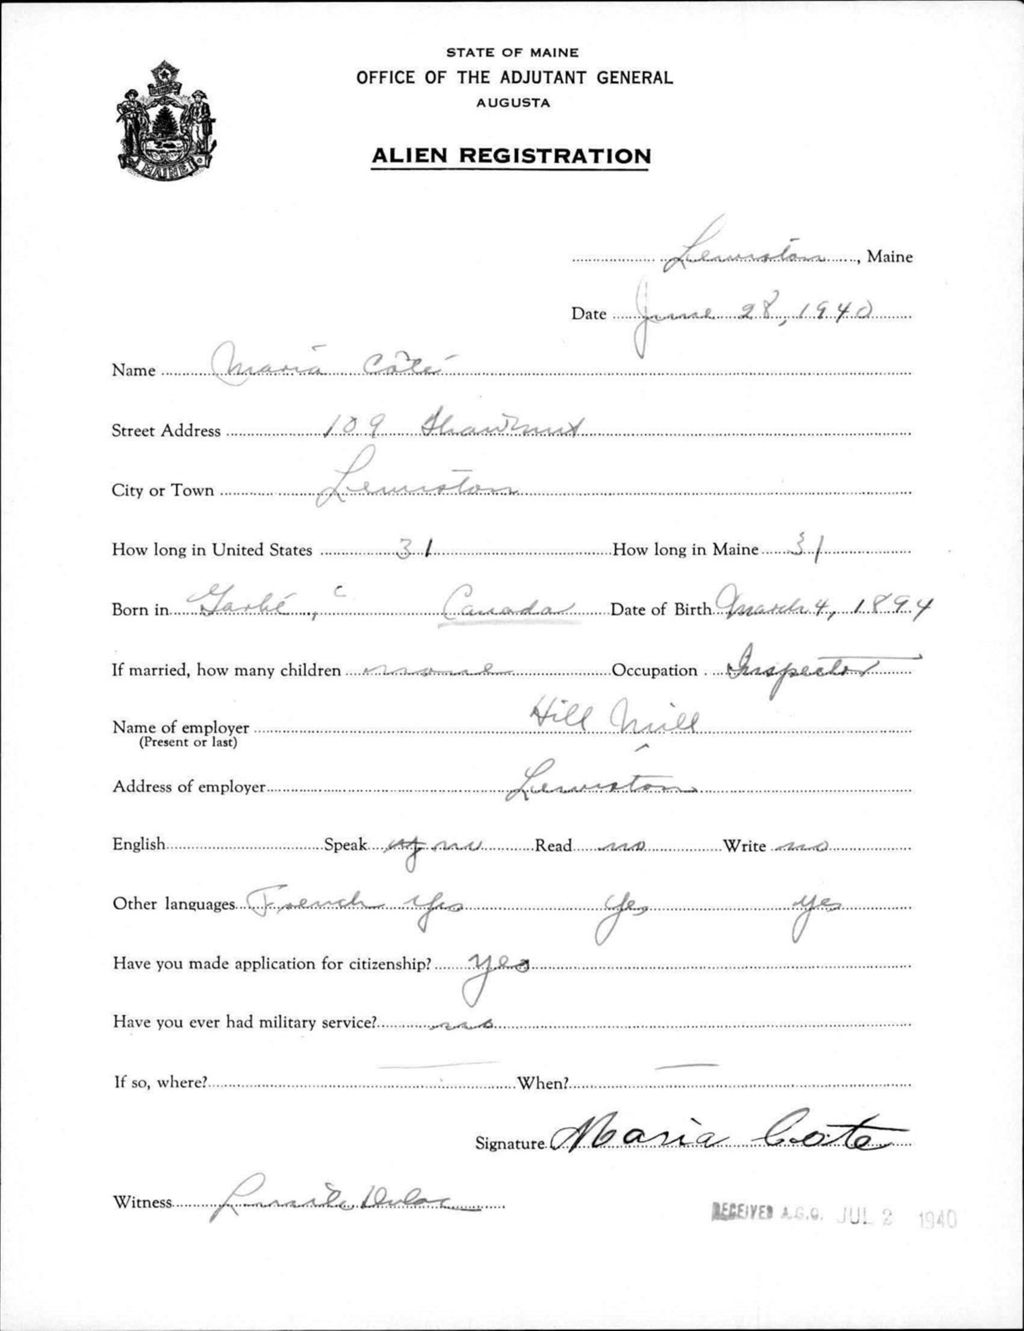 STATE OF MAINE
OFFICE OF THE ADJUTANT GENERAL
AUGUSTA
ALIEN REGISTRATION
Lewiston, Maine
Date June 28, 1940
Name Maria Côté
Street Address 109 Shawmut
City or Town Lewiston
How long in United States 31 How long in Maine 31
Born in Canada Date of Birth March 4, 1894
If married, how many children none Occupation Inspector
Name of employer Hill Mill
(Present or last)
Address of employer Lewiston
English Speak Read no Write no
Other languages French yes yes yes
Have you made application for citizenship? yes
Have you ever had military service? no
If so, where? — When? —
Signature Maria Cote
Witness Dulac
RECEIVED A.G.O. JUL 2 1940
MAINE